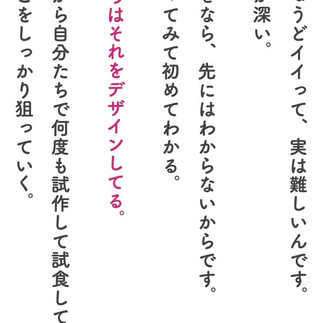 うどイイって、実は難しいんです。
が深い。
をなら、先にはわからないからです。
てみて初めてわかる。
らはそれをデザインしてる。
から自分たちで何度も試作して試食して
をしっかり狙っていく。